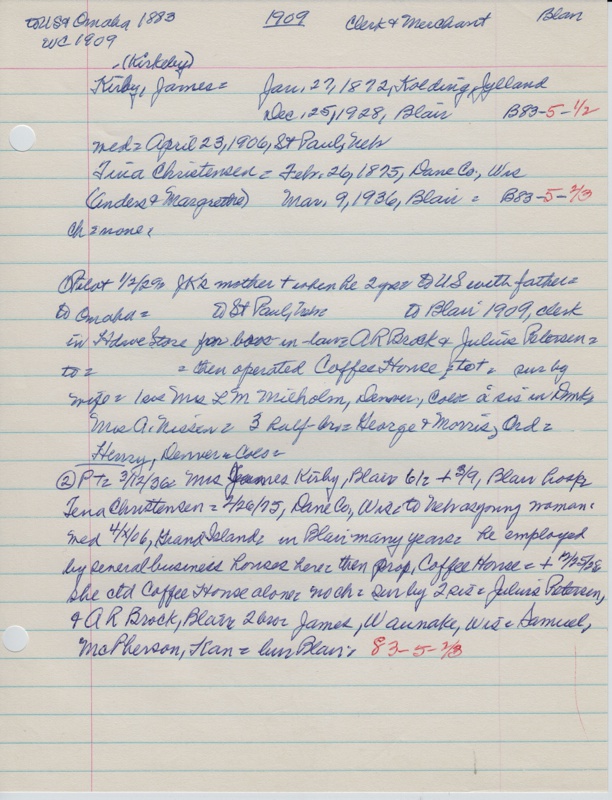 to US & Omaha 1883 1909 Clerk & Merchant Blair
WC 1909
(Kirkeby)
Kirby, James = Jan. 27, 1872, Kolding, Jylland
Dec. 25, 1928, Blair B83-5-1/2
med = April 23, 1906, St Paul, Neb
Tina Christensen = Feb. 26, 1875, Dane Co, Wis
(Anders & Margrethe) Mar. 9, 1936, Blair = B83-5-2/3
ch = none.
① Pilot 1/2/29 = JK's mother + when he 2 yrs = to US with father =
to Omaha = to St Paul, Neb to Blair 1909, clerk
in Hdwe Store for bros in-law = A R Brock & Julius Petersen =
to = = then operated Coffee House = tot = sur by
wife = 1 sis Mrs L M Milholm, Denver, Colo = a sis in Dmk,
Mrs A. Nissen = 3 half-bro = George & Morris, Ord =
Henry, Denver, Colo =
② P+ = 3/12/36 = Mrs James Kirby, Blair 61 = + 3/9, Blair hosp =
Tena Christensen = 2/26/75, Dane Co, Wis = to Neb as young woman.
med 4/ /06, Grand Island = in Blair many years = he employed
by several business houses here = then prop. Coffee House = + 12/25/28
she ctd Coffee House alone = no ch = sur by 2 sis = Julius Petersen,
& A R Brock, Blair = 2 bro = James, Waunake, Wis = Samuel,
McPherson, Kan = bur Blair. 83-5-2/3